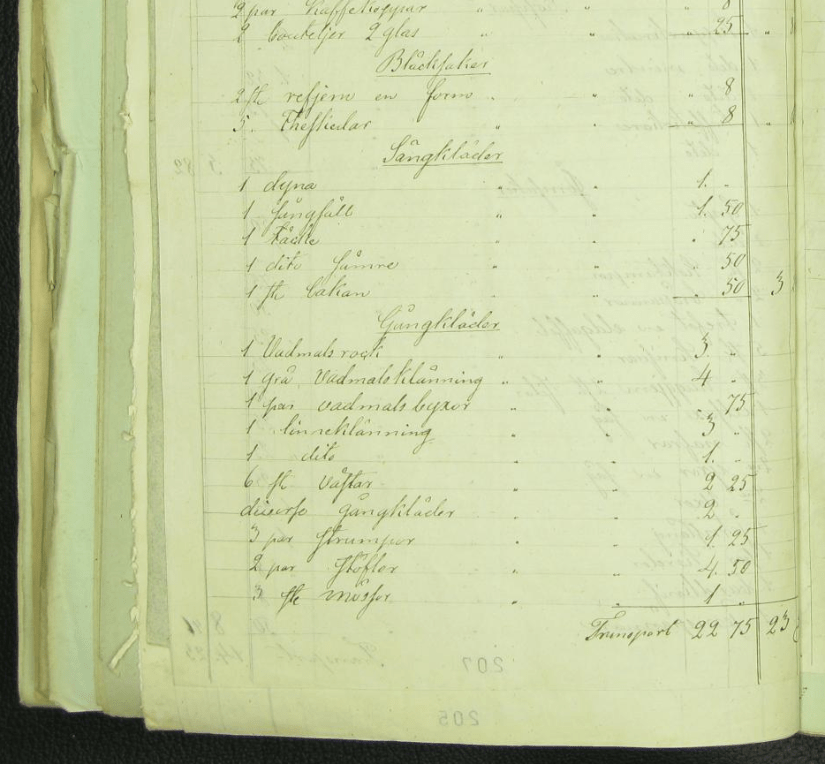 2 par Kaffekoppar " " " 8
2 bouteljer 2 glas " " " 25 "
Bläcksaker
2 st refjern en form " " " 8
5 Theskedar " " " 8 "
Sängkläder
1 dyna " " 1. "
1 fångfäll " " 1. 50
1 täcke " " " 75
1 dito sämre " " " 50
1 st Lakan " " " 50 3
Gångkläder
1 Vadmalsrock " " 3. "
1 grå vadmalsklänning " " 4 "
1 par vadmals byxor " " " 75
1 linneklänning " " 3 "
1 dito " " 1. "
6 st västar " " 2 25
diverse gångkläder " " 2 "
3 par strumpor " " 1. 25
2 par stöflar " " 4. 50
3 st mössor " " 1 "
Transport 22 75 23
207
205